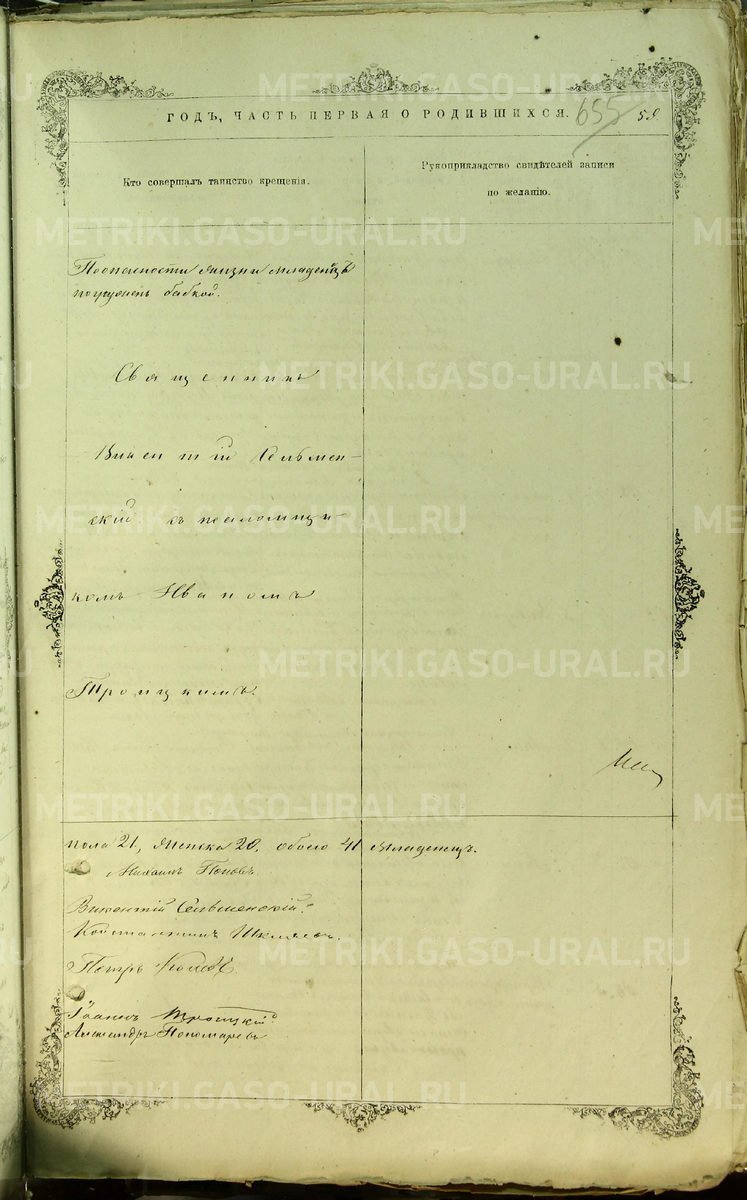 ГОДЪ, ЧАСТЬ ПЕРВАЯ О РОДИВШИХСЯ. 655 59
Кто совершалъ таинство крещенія.
Рукоприкладство свидѣтелей записи
по желанію.
По опасности жизни младенецъ
погруженъ бабкой.
Священникъ
Викентій Сельмен-
скій съ псаломщи-
комъ Иваномъ
Троицкимъ.
пола 21, женска 20, обоего 41 младенецъ.
Михаилъ Поповъ
Викентій Сельменскій.
Константинъ
Петръ
Іоаннъ Троицкій
Александръ Пономаревъ
METRIKI.GASO-URAL.RU